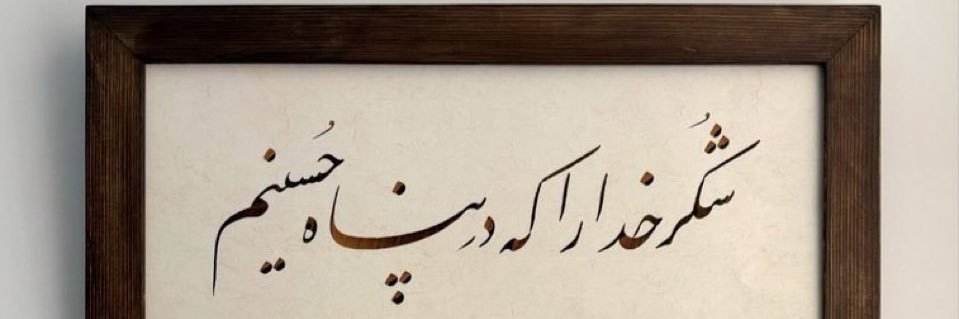 شُکر خدا را که در پناه حُسینیم